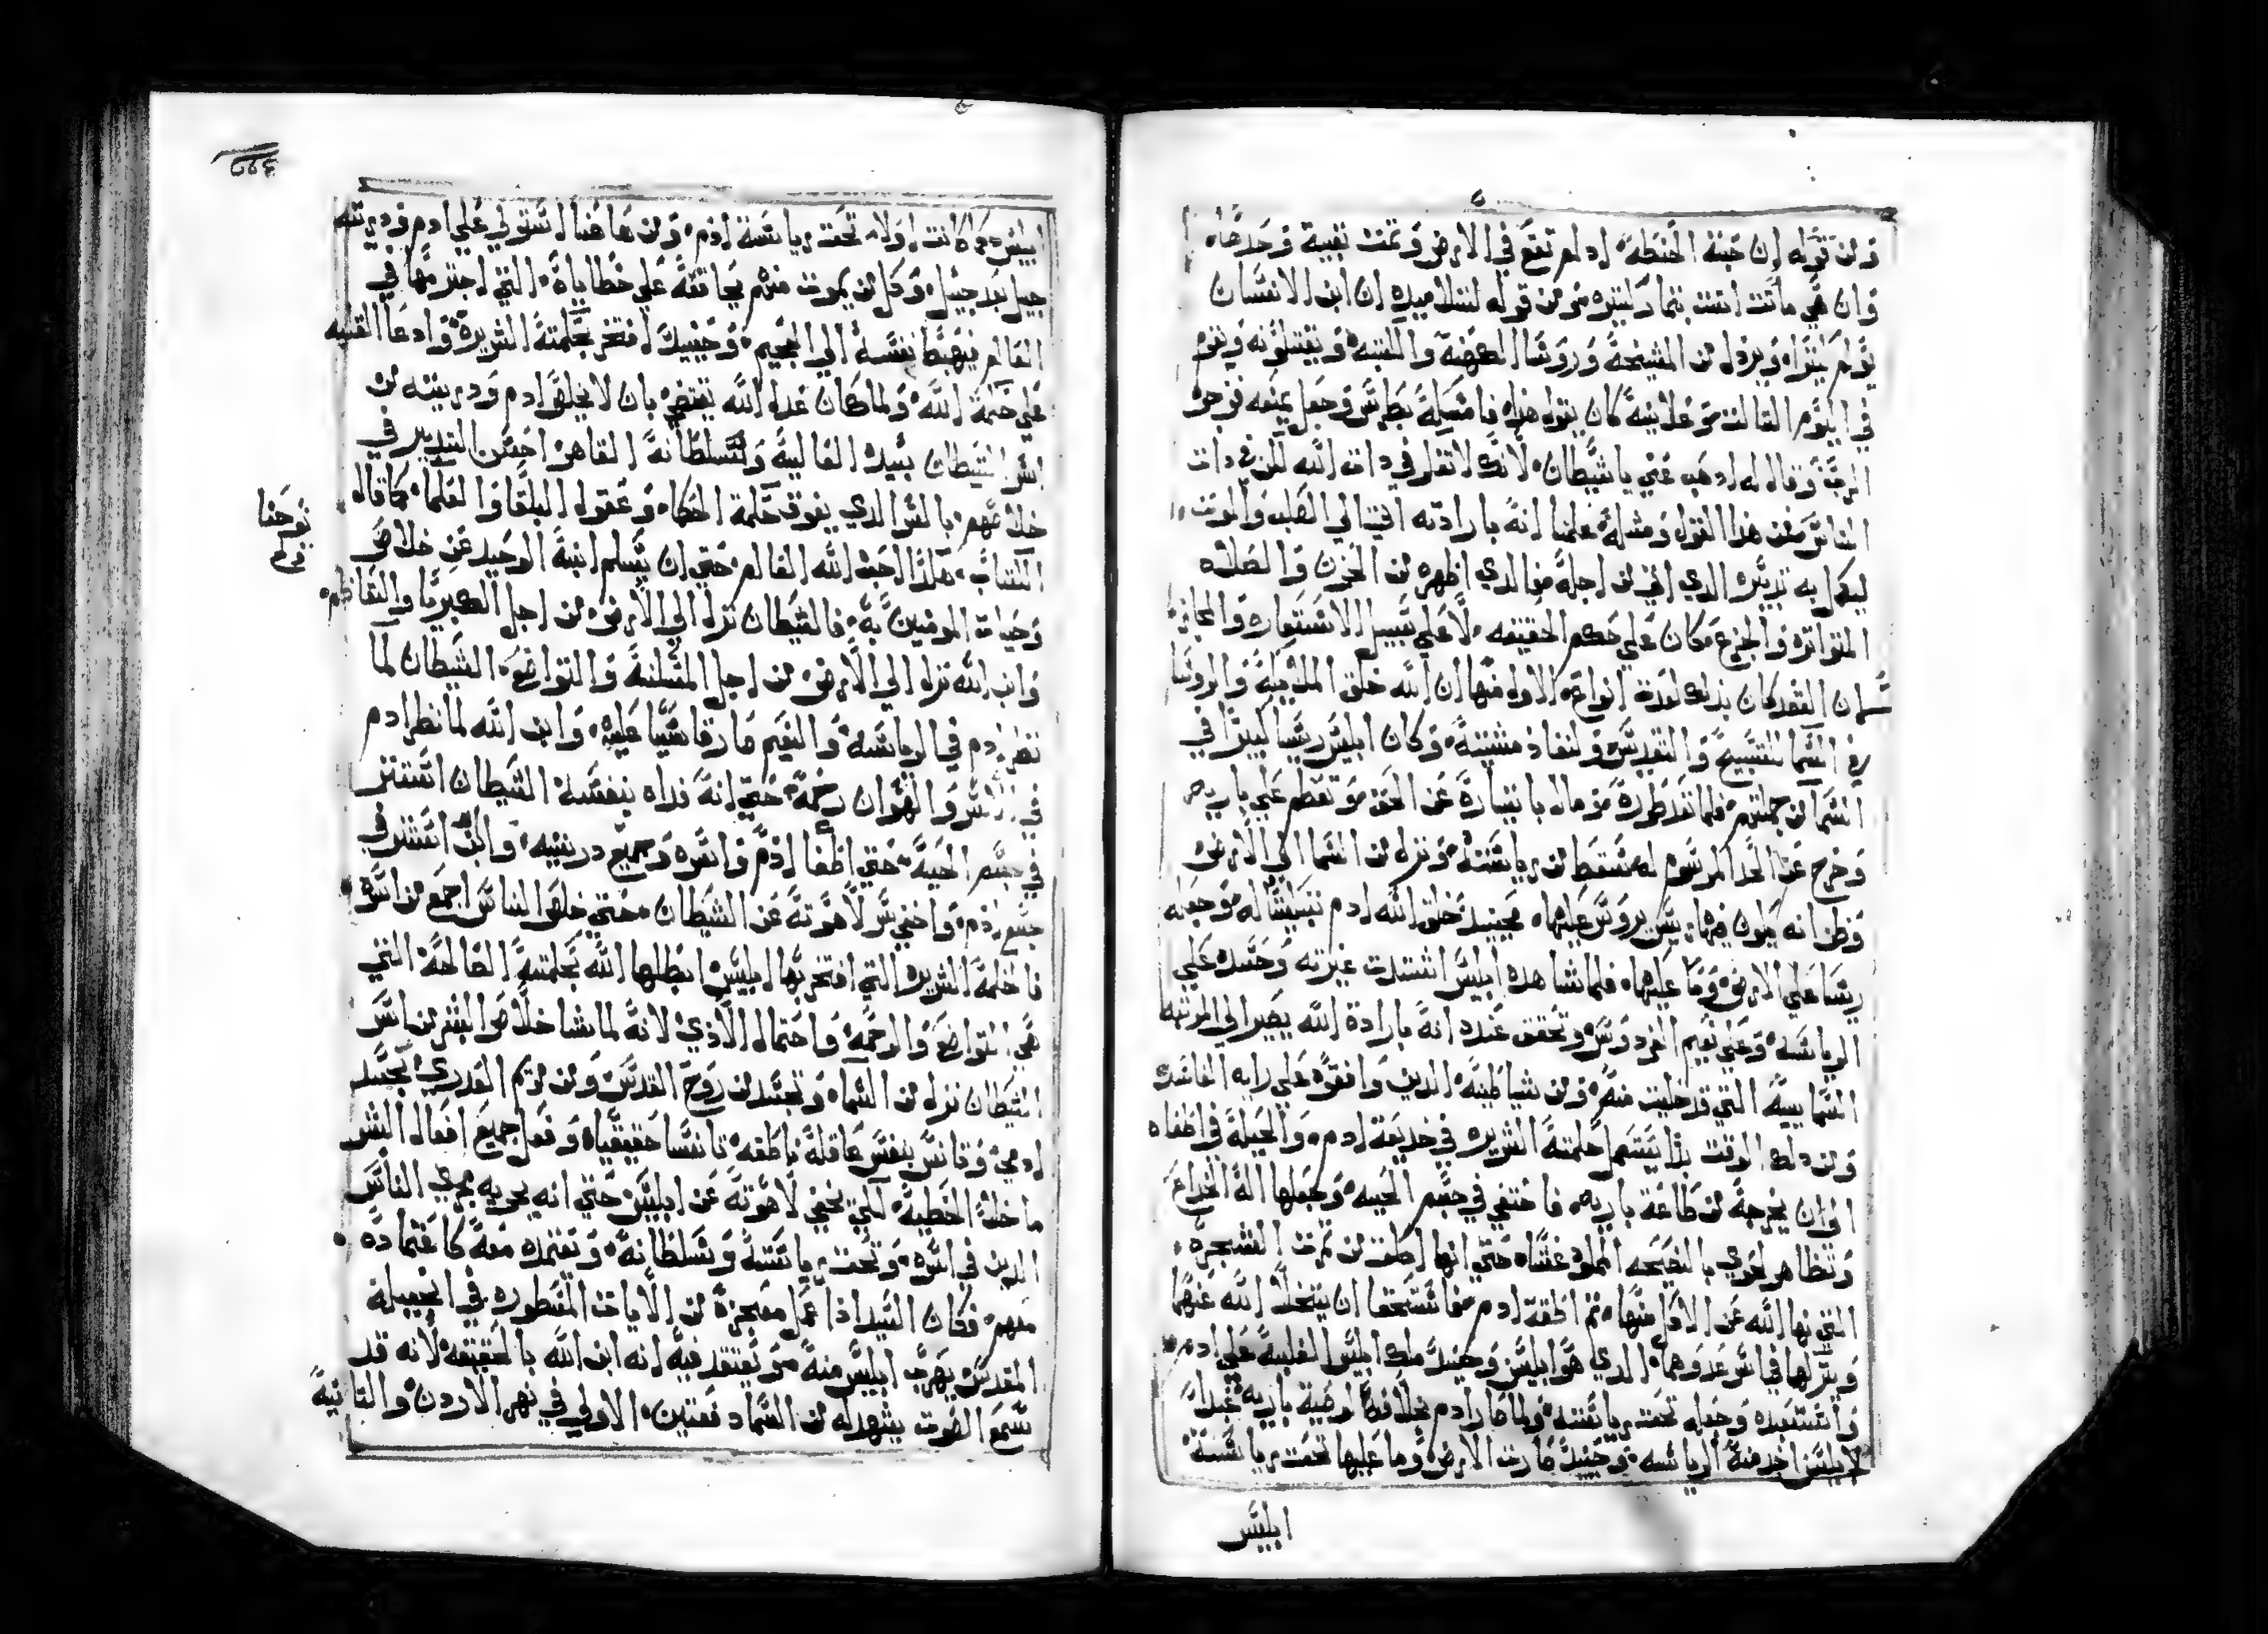 ومن قوله إن حبة الحنطة اد لم تقع في الارض وتمت تبقية وحدها
وان هي ماتت اتت بثمار كثيره ومن قوله لتلاميده ان ابن الانسان
يولم كثيرا ويردل من المشيخة وروسا الكهنة والكتبه ويقتلونه ويقوم
في اليوم التالت وعلانية كان يقول هدا فامسكه بطرس وجعل يمنعه فزجره
الرب وقال له ادهب عني ياشيطان لانك لا تفكر في دات الله لكن في دات
الناس فمن هدا القول ومثله علمنا انه بارادته اتي الي الصلب والموت
ليكمل به تدبيره الدي اتي من اجله فالدي اظهره من الحزن والصلاه
المتواتره والجزع فكان علي حكم الحقيقه لا علي سبيل الاستعاره والمجاز
ان القصد كان بدلك لعدة انواع الاول منها ان الله خلق الملايكة والروسا
في السما للتسبيح والتقديس ولنفاد مشيته وكان ابليس ريسا كبيرا في
السما من جملتهم فلما تعدا طوره ومال باختياره عن الحق وتعظم علي باريه
وخرج عن الحد المرسوم له سقط من رياسته ونزل من السما الي الارض
وظن انه يكون فيها ريس يروس عليها فحينيد خلق الله ادم تبكيتا له وجعله
ريسا علي الارض وما عليها فلما شاهده ابليس اشتدت غيرته وحسده علي
الرياسه وعلي نعيم الفردوس وتحقق عنده انه بارادة الله يصير الي المرتبه
السماييه التي قد خليت منه ومن شياطينه الدين وافقوه علي رايه الفاسد
ومن دلك الوقت بدا يستعمل حكمته الشريره في خديعة ادم والحيلة في اطغاه
الي ان يخرجه من طاعة باريه فاختفي في جسم الحيه وجعلها الة الخداع
وتظاهر لحوي بالنصيحه المملوه غشا حتي انها اكلت من تمرت الشجره
التي نها الله عن الاكل منها تم اطغة ادم فاستحقا ان يتخلا الله عنهما
ويتركهما في اسر عدوهما الدي هو ابليس وحينيد ملك ابليس الغلبة علي ادم
واستعبده وجعله تحت رياسته ولما صار ادم بخلافه لوصية باريه عبدا
لابليس اخد منه الرياسه وحينيد صارت الارض وما عليها تحت رياسة
ابليس
ابليس كما كانت اولا تحت رياسة ادم ومن هاهنا استولي علي ادم ودريته
جيل بعد جيل وكل من يموت منهم يعاقبه علي خطاياه التي اجترمها في
العالم فيهبط نفسه الي الجحيم وحينيد افتخر بحكمته الشريره وادعا الغلبه
علي حكمة الله ولما كان عدل الله يقتضي بان لا يخلص ادم ودريته من
اسر الشيطان بيده الغالبة وسلطانه القاهر احسن التدبير في
خلاصهم بالسر الدي يفوق حكمة الحكما وعقول البلغا والعلما كما قال
الكتاب هكدا احب الله العالم حتي ان يسلم ابنه الوحيد عن خلاص
وحياة المومنين به فالشيطان نزل الي الارض من اجل الكبريا والتعاظم
وابن الله نزل الي الارض من اجل المسكنة والتواضع الشيطان لما
نظر ادم في الرياسه والنعيم صار قاسيا عليه وابن الله لما نظر ادم
في الاسر والهوان رحمه حتي انه فداه بنفسه الشيطان استتر
في جسم الحية حتي اطغا ادم واسره وجميع دريته والابن استتر في
جسم ادم واخفي سر لاهوته عن الشيطان حتي خلص الناس اجمع من اسره
فالحكمة الشريره التي افتخر بها ابليس ابطلها الله بحكمته الصالحة التي
هي التواضع والرحمه واحتمال الادي لانه لما شا خلاص البشر من اسر
الشيطان نزل من السما وتجسد من روح القدس ومن مريم العدري بجسد
ادمي وتانس بنفس عاقلة ناطقه تانسا حقيقيا وفعل جميع افعال البشر
ما خلا الخطية لكي يخفي لاهوته عن ابليس حتي انه يجريه مجري الناس
الدين في اسره وتحت رياسته وسلطانه ويعتمده معه كاعتماده
معهم فكان السيد ادا عمل معجزة من الايات المسطوره في انجيله
المقدس يهرب ابليس منه ويعتقد فيه انه ابن الله بالحقيقه لانه قد
سمع الصوت يشهد له من السما دفعتين الاولي في نهر الاردن والتانية
يوحنا